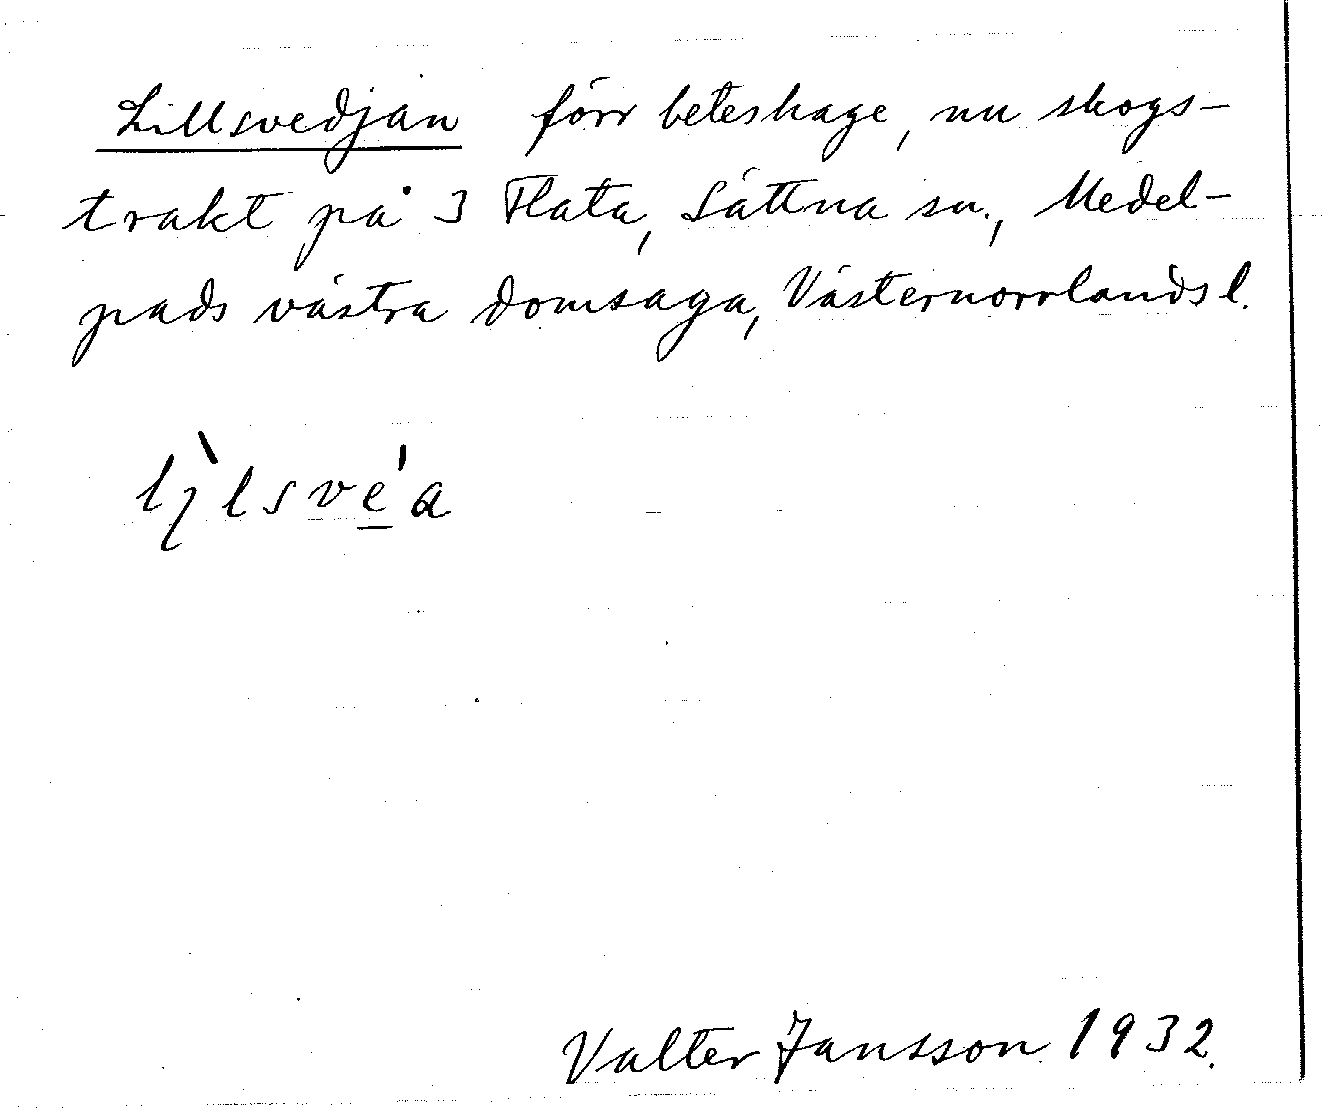 Lillsvedjan förr beteshage, nu skogs-
trakt på 3 Flata, Sättna sn., Medel-
pads västra domsaga, Västernorrlands l.
lı̨̀lsvé̲a
Valter Jansson 1932.